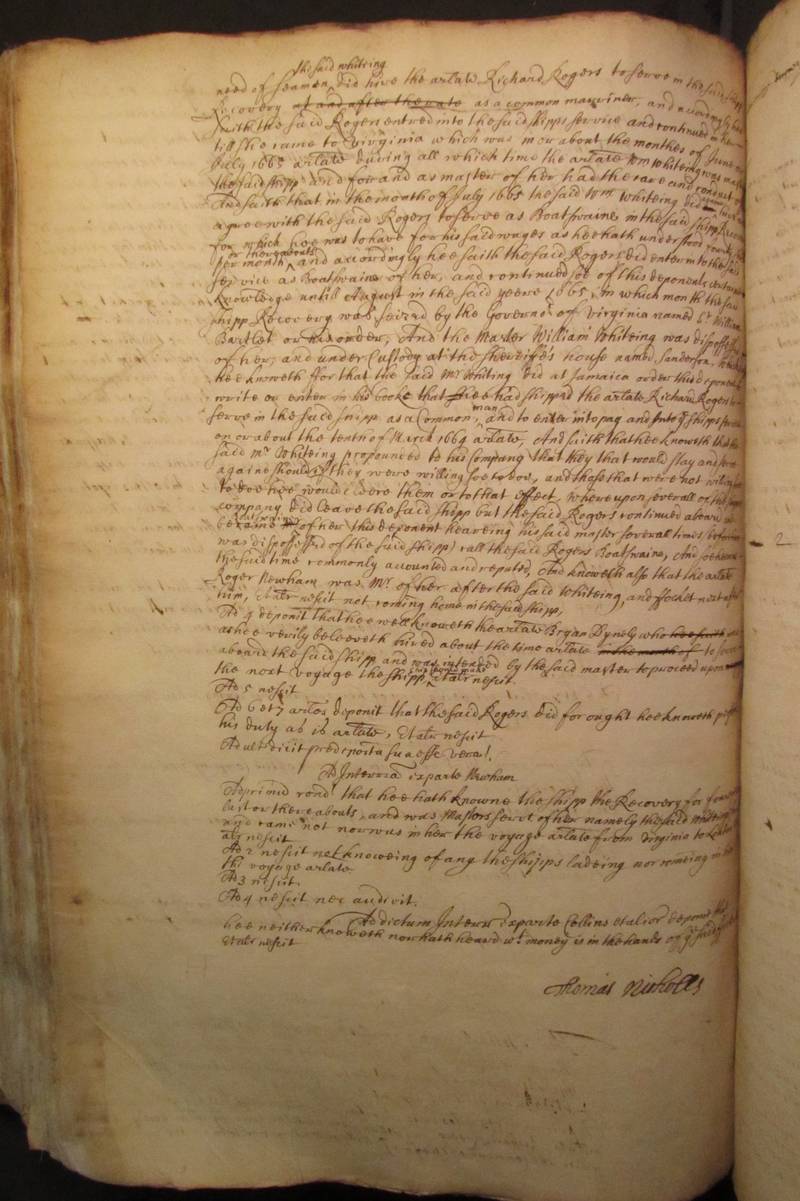 the said whiteing
need of seamen did hire the arlate Richard Rogers to serve in the said shipp
Recovery at and after the rate as a common marriner, and accordingly hee
saith the said Rogers entred into the said shipps service and continued in her
till shee came to Virginia which was in or about the monthes of June or
July 1665 arlate during all which time the arlate Wm Whiteing was master
of the said shipp and for and as master of her had the care and conduct
And saith that in the month of July 1665 the said Wm Whiteing did
agree with the said Rogers to serve as Boatswaine in the said shipp Recovery
for which hee was to have for his said wages as hee hath understood
or thereabouts
per month and accordingly hee saith the said Rogers did enter into the said
service as Boatswaine of her, and continued soe of this deponents certaine
knowledge untill August in the said yeere 1665, in which month the said
shipp Recovery was seized by the Governor of Virginia named Sr William
Bartlet or his order, And the Master William Whiteing was dispossessed
of her, and under Custody at the Sherriffe's house named Sanderson, which
hee knoweth ffor that the said Mr Whiting did at Jamaica order this deponent
write or enter in his booke that hee had shipped the arlate Richard Rogers to
serve in the said shipp as a Common man, and to enter into pay and into ye shipps service
on or about the tenth of March 1664 arlate, And saith that hee knoweth that the
said Mr Whiteing pronounced to his company that they that would stay and serve
againe should if they were willing soe to doe, and those that were not willing
to doe hee would cleere them or to that effect, whereupon severall of his
company did leave the said shipp but the said Rogers continued aboard and
Boatswaine
became of her this deponent heareing his said master severall times before hee
was dispossessed of the said shipp) call the said Rogers Boatswaine, And soe hee was
the said time commonly accounted and reputed, And knoweth also that the arlate
Roger Newham was Mr of her after the said Whiteing, and ffocket next after
him, et aliter nescit not coming home in the said shipp,
Ad 4 deponit that hee well knoweth the arlate Bryan Dynely who hee saith was
as hee verily beleeveth hired about the time arlate in the month of to serve
aboard the said shipp and was intended by the said master to proceed upon
the next voyage the shipp should make et aliter nescit.
Ad 5 nescit
Ad 6 et 7 arlos deponit that the said Rogers did for ought hee knoweth performe
his duty as is arlate, et aliter nescit
Ad ult dicit predeposita sua esse vera.
Ad Interria ex parte Newham
Ad primum rondt that hee hath knowne the shipp the Recovery for
last or thereabouts, and was Masters servt of her namely the said Whiteing
and came not nor was in her the voyage arlate from Virginia to London
altr nescit
Ad 2 nescit not knoweing of any the shipps ladeing nor comeing in her
the voyage arlate
Ad 3 nescit.
Ad 4 nescit nec audivit.
Ad dictum Interr ex parte Collins et alior deponit that
hee neither knoweth nor hath heard wt money is in the hands of ye said
et altr nescit
Thomas Nicholls
2